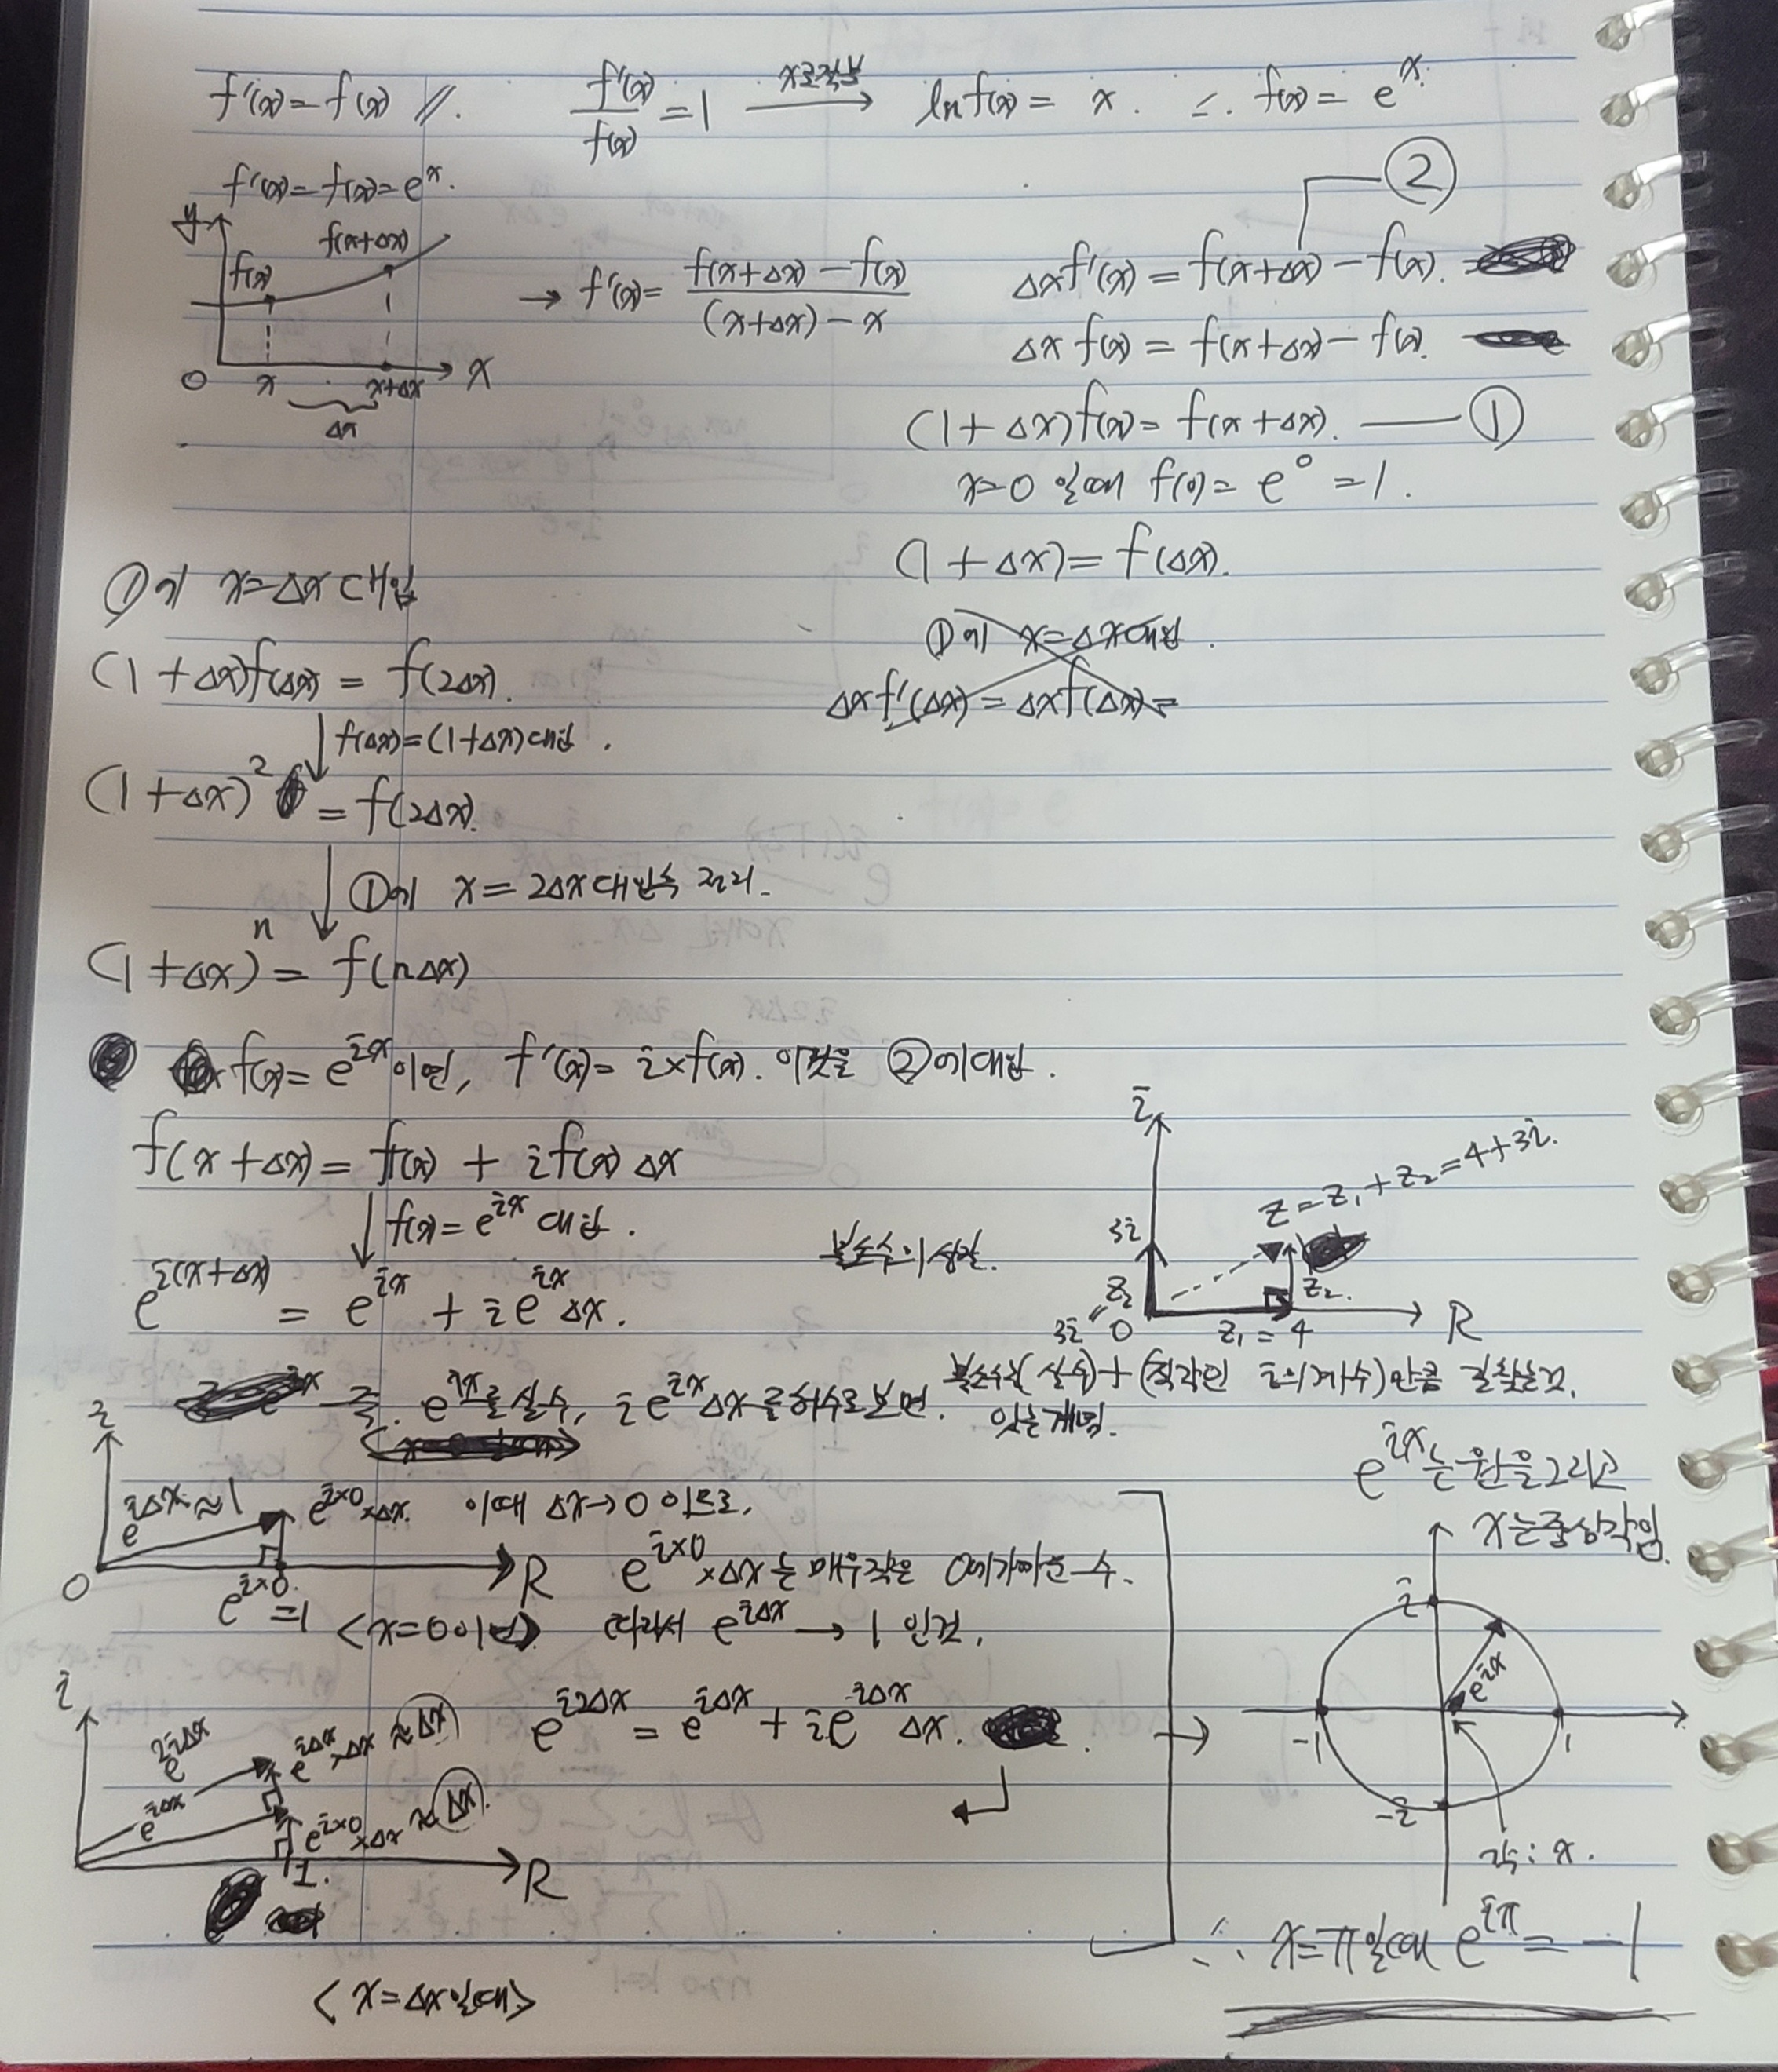 f'(x) = f(x) //. f'(x)/f(x) = 1 x로적분 → ln f(x) = x. ∴ f(x) = e^x.
f'(x) = f(x) = e^x.
②
y f(x) f(x+Δx) O x x+Δx X Δx
→ f'(x) = (f(x+Δx) - f(x))/((x+Δx) - x)
Δx f'(x) = f(x+Δx) - f(x).
Δx f(x) = f(x+Δx) - f(x).
(1+Δx)f(x) = f(x+Δx). ①
x=0 일때 f(0) = e^0 = 1.
(1+Δx) = f(Δx).
①에 x=Δx대입.
Δx f'(Δx) = Δx f(Δx) =
①에 x=Δx 대입
(1+Δx)f(Δx) = f(2Δx).
↓ f(Δx)=(1+Δx)대입.
(1+Δx)^2 = f(2Δx).
↓ ①에 x=2Δx대입후 정리.
(1+Δx)^n = f(nΔx)
f(x) = e^{ix} 이면, f'(x) = i×f(x). 이것을 ②에대입.
f(x+Δx) = f(x) + i f(x) Δx
↓ f(x) = e^{ix} 대입.
e^{i(x+Δx)} = e^{ix} + i e^{ix} Δx.
복소수의성질.
i 3i Z2 3i O Z1=4 Z2. R
Z=Z1+Z2=4+3i.
복소수는(실수)+(직각인 i의계수)만큼
있는개념.
즉. e^{ix}를실수, i e^{ix}Δx를허수로보면.
i e^{iΔx}≈1 e^{i×0}×Δx. O e^{i×0}=1 R
<x=0이면>
이때 Δx→0 이므로,
e^{i×0}×Δx는매우작은 0에가까운 수.
따라서 e^{iΔx} → 1 인것.
i e^{2iΔx} e^{iΔx}×Δx≈Δx e^{iΔx} e^{i×0}×Δx≈Δx. 1. R
e^{i2Δx} = e^{iΔx} + i e^{iΔx} Δx.
<x=Δx일때>
→
e^{ix}는원을그리고
x는중심각임.
i e^{ix} -1 1 -i
각: x.
∴ x=π일때 e^{iπ} = -1